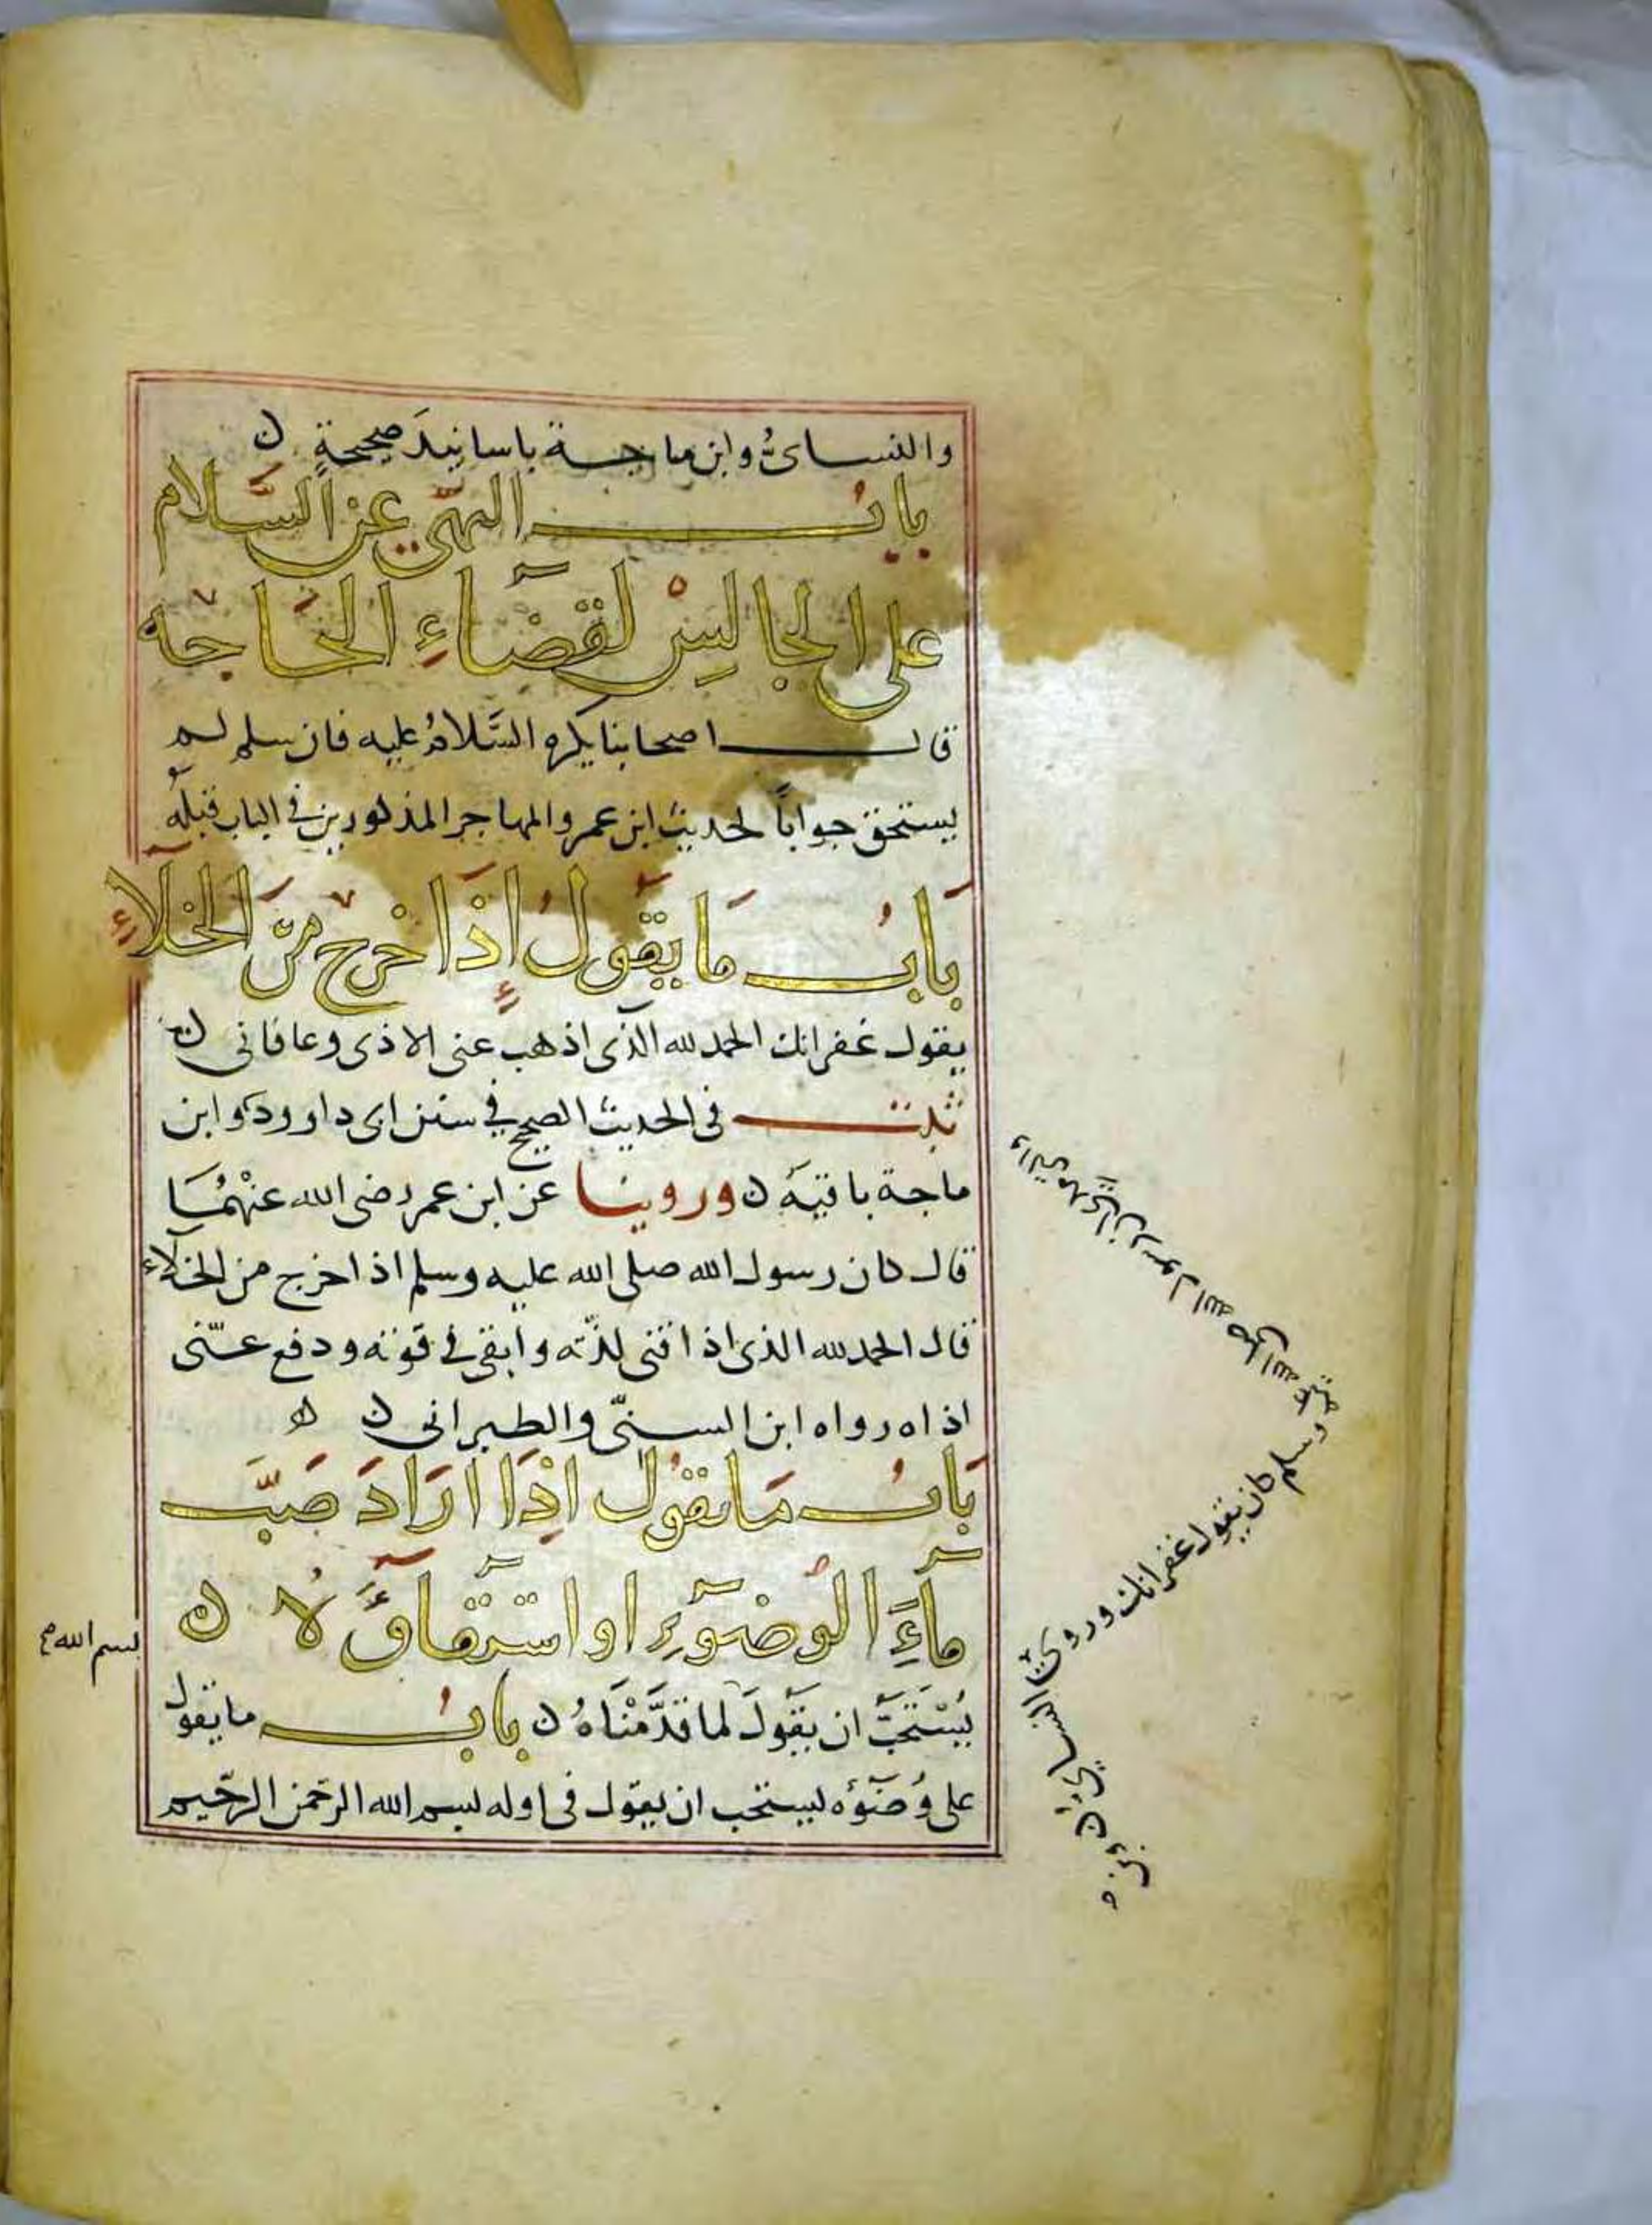 والنسائُ وابن ماجة باسانيدَ صحيحةٍ ن
بابُ النهي عن السَّلام
على الجالسْ لقضآءِ الحَاجه
قال اصحابنا يكره السَّلامُ عليه فان سلم لم
يستحق جواباً لحديث ابن عمر والمهاجر المذكورين في الباب قبلَهُ
بَابُ مَا يقَولُ إذَا خرج مِنَ الخلآءِ
يقول غفرانك الحمد لله الذى اذهب عنى الاذى وعافانى ن
ثبت فى الحديث الصحيح في سنن ابى داوود وابن
ماجة باقيَهُ ن وروينا عن ابن عمر رضى الله عنْهُمَا
قال كان رسول الله صلى الله عليه وسلم اذا خرج من الخلاء
قال الحمد لله الذى اذاقنى لذّته وابقى في قوته ودفع عنّى
اذاه رواه ابن السنىّ والطبرانى ن ه
بَابُ مَا يقوُل اذَا ارَادَ صَبَّ
مآءَِ الوُضوَءِ او استقآءَُ لا ن
يُسْتَحَبّ ان يقَوُلَ لما قدَّمْنَاهُ ن بابُ ما يقول
على وُضوُءه يستحب ان يقول فى اوله بسم الله الرحمن الرحيم
بسم الله
ان رسول الله صلى الله
عليه وسلم كان يقول غفرانك وروىٰ النسائ